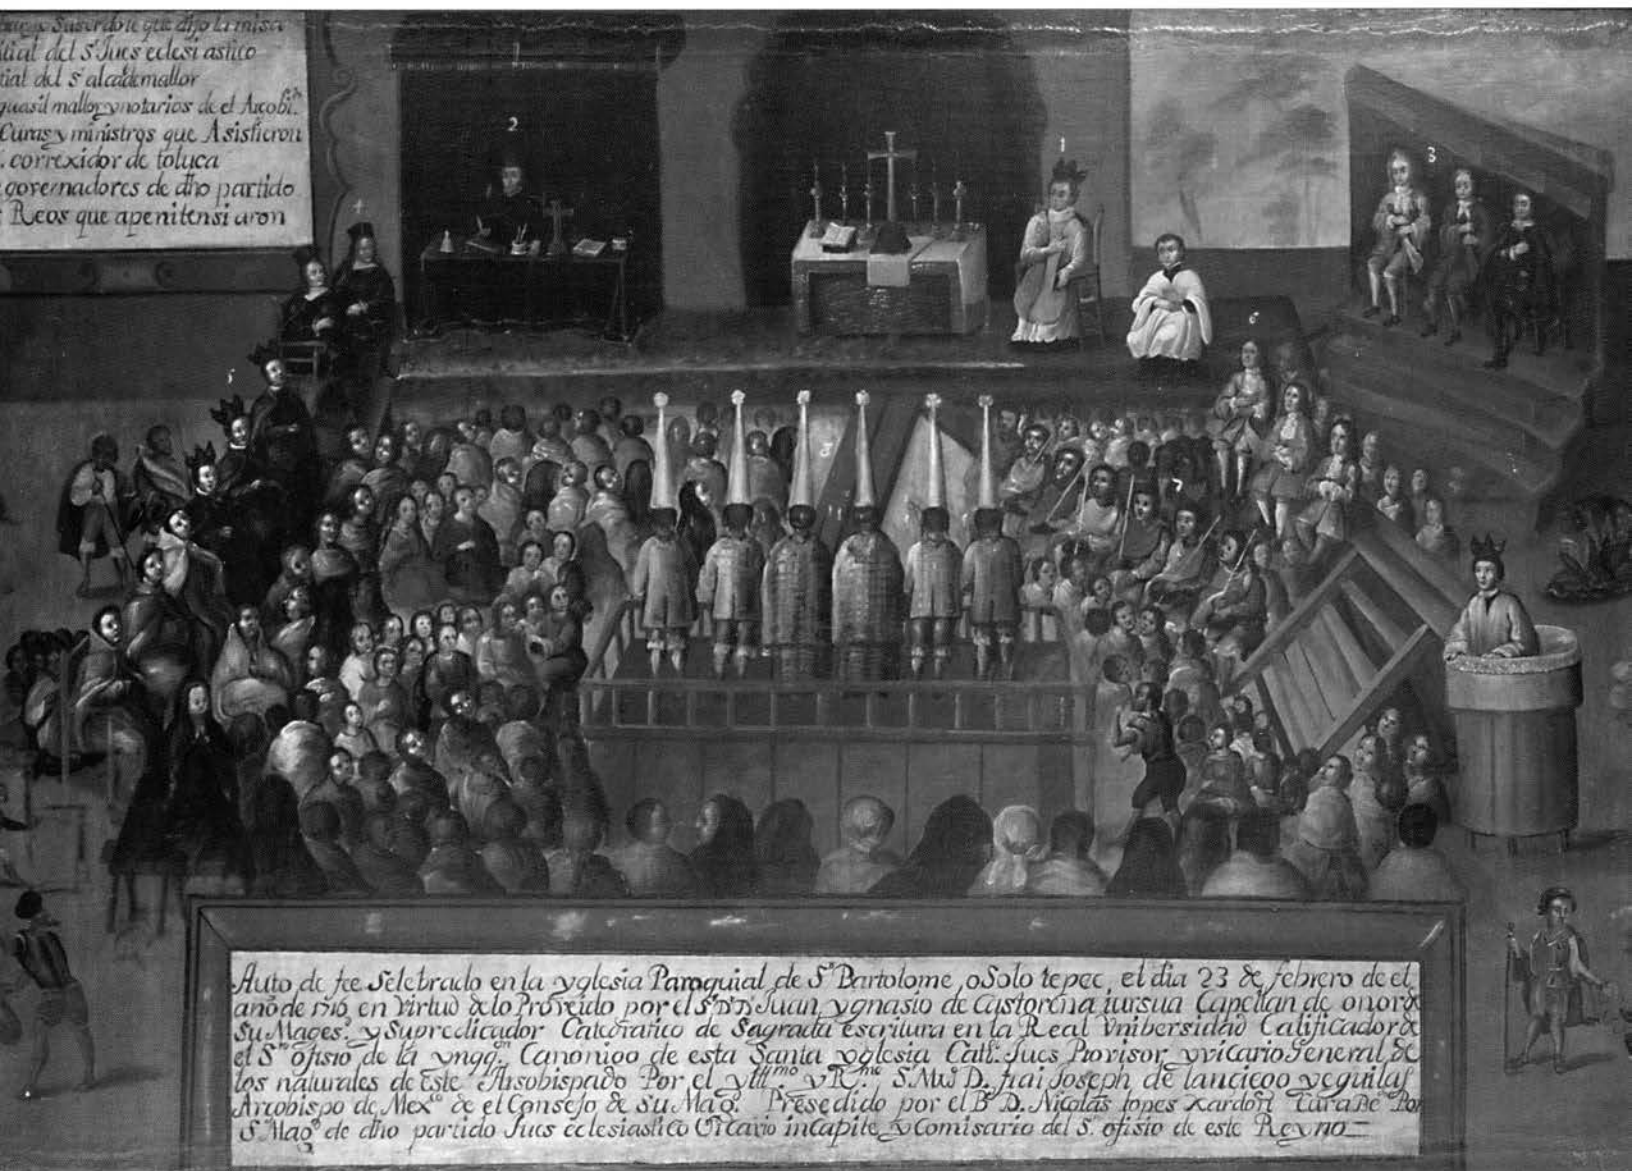 Saserdote que dho la misa
del Sr Jues eclesi astico
del Sr alcademallor
mallor y notarios de el Arcobi.
Curas y ministros que Asistieron
correxidor de toluca
governadores de dho partido
Reos que apenitensi aron
1
2
1
3
4
5
6
7
8
Auto de fee Selebrado en la yglesia Paroquial de Sn Bartolome, oSolo tepec, el dia 23 de febrero de el
año de 1716, en Virtud de lo Proveido por el Sr Dr Dn Juan, ygnasio de Castorena iursua Capellan de onor de
Su Mages. y Supredicador Catedratico de Sagrada escritura en la Real Vnibersidad Calificador de
el Sto ofisio de la ynqqn Canonigo de esta Santa yglesia Catl. Jues Provisor, y vicario General de
los naturales de este Arsobispado Por el ylllmo y Rmo S. Mro D. frai Joseph de lanciego y eguilas
Arcobispo de Mexco de el Consejo de Su Mag. Presedido por el Br D. Nicolas lopes Xardon Cura Bedo Por
S. Magd de dho partido Jues eclesiastico Vicario incapite, y Comisario del Sto ofisio de este Reyno